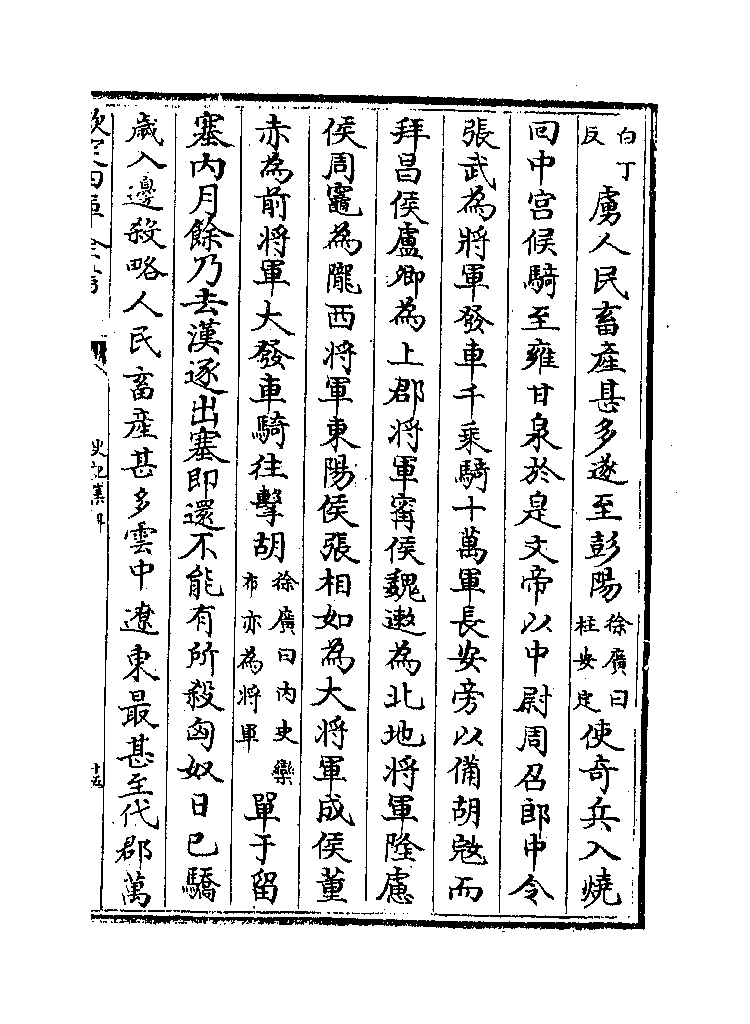 白丁反虜人民畜產甚多遂至彭陽徐廣曰在安定使奇兵入燒
回中宮候騎至雍甘泉於是文帝以中尉周召郎中令
張武為將軍發車千乘騎十萬軍長安旁以備胡㓂而
拜昌侯盧卿為上郡將軍甯侯魏遬為北地將軍隆慮
侯周竈為隴西將軍東陽侯張相如為大將軍成侯董
赤為前將軍大發車騎往擊胡徐廣曰內史欒布亦為將軍單于留
塞內月餘乃去漢逐出塞即還不能有所殺匈奴日已驕
歲入邊殺略人民畜產甚多雲中遼東最甚至代郡萬
欽定四庫全書
史記集解
十五